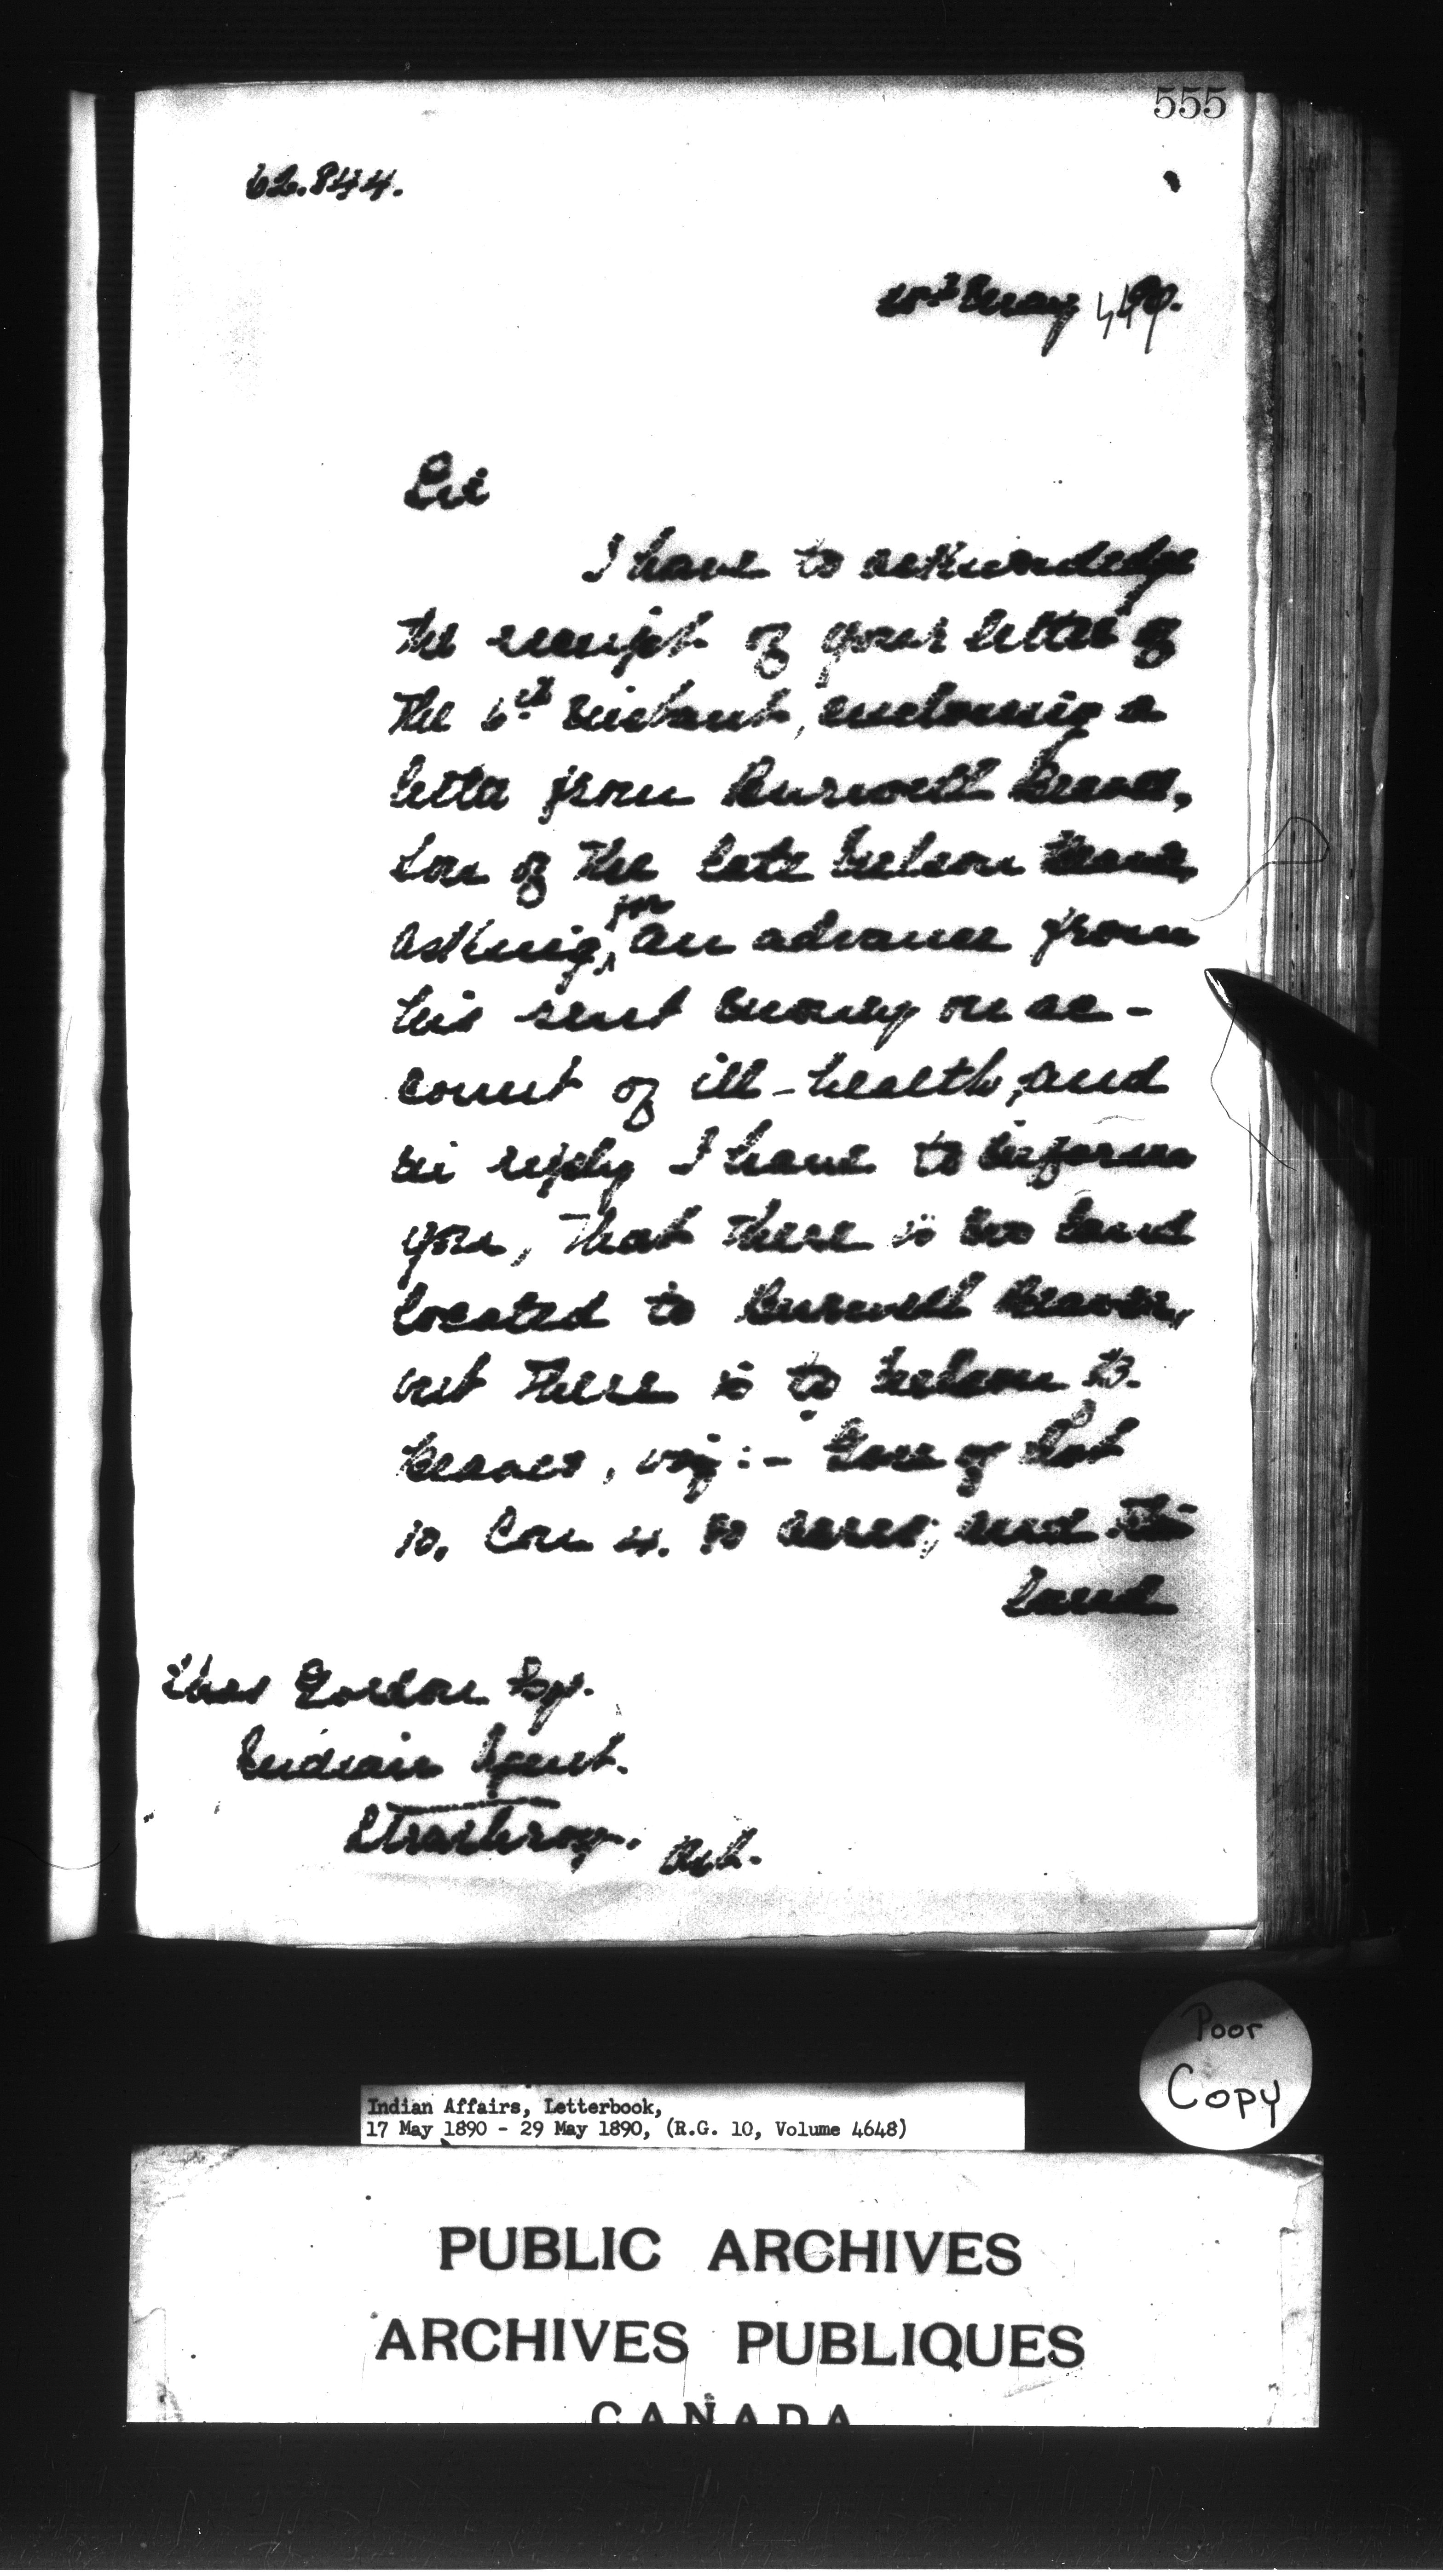 555
62.844.
May 1890.
Sir
I have to acknowledge
the receipt of your letter of
the 6th Instant, enclosing a
letter from Burwell
Son of the late Nelson
asking, for an advance from
his rent money on ac-
count of ill-health, and
in reply I have to inform
you, that there is no land
located to Burwell Beaver,
but there is to Nelson B.
Beaver, viz:- Gore of Lot
10, Con 4. acres; and
land
Gordon Esq.
Indian Agent.
Strathroy.
Ont.
Poor
Copy
Indian Affairs, Letterbook,
17 May 1890 - 29 May 1890, (R.G. 10, Volume 4648)
PUBLIC ARCHIVES
ARCHIVES PUBLIQUES
CANADA